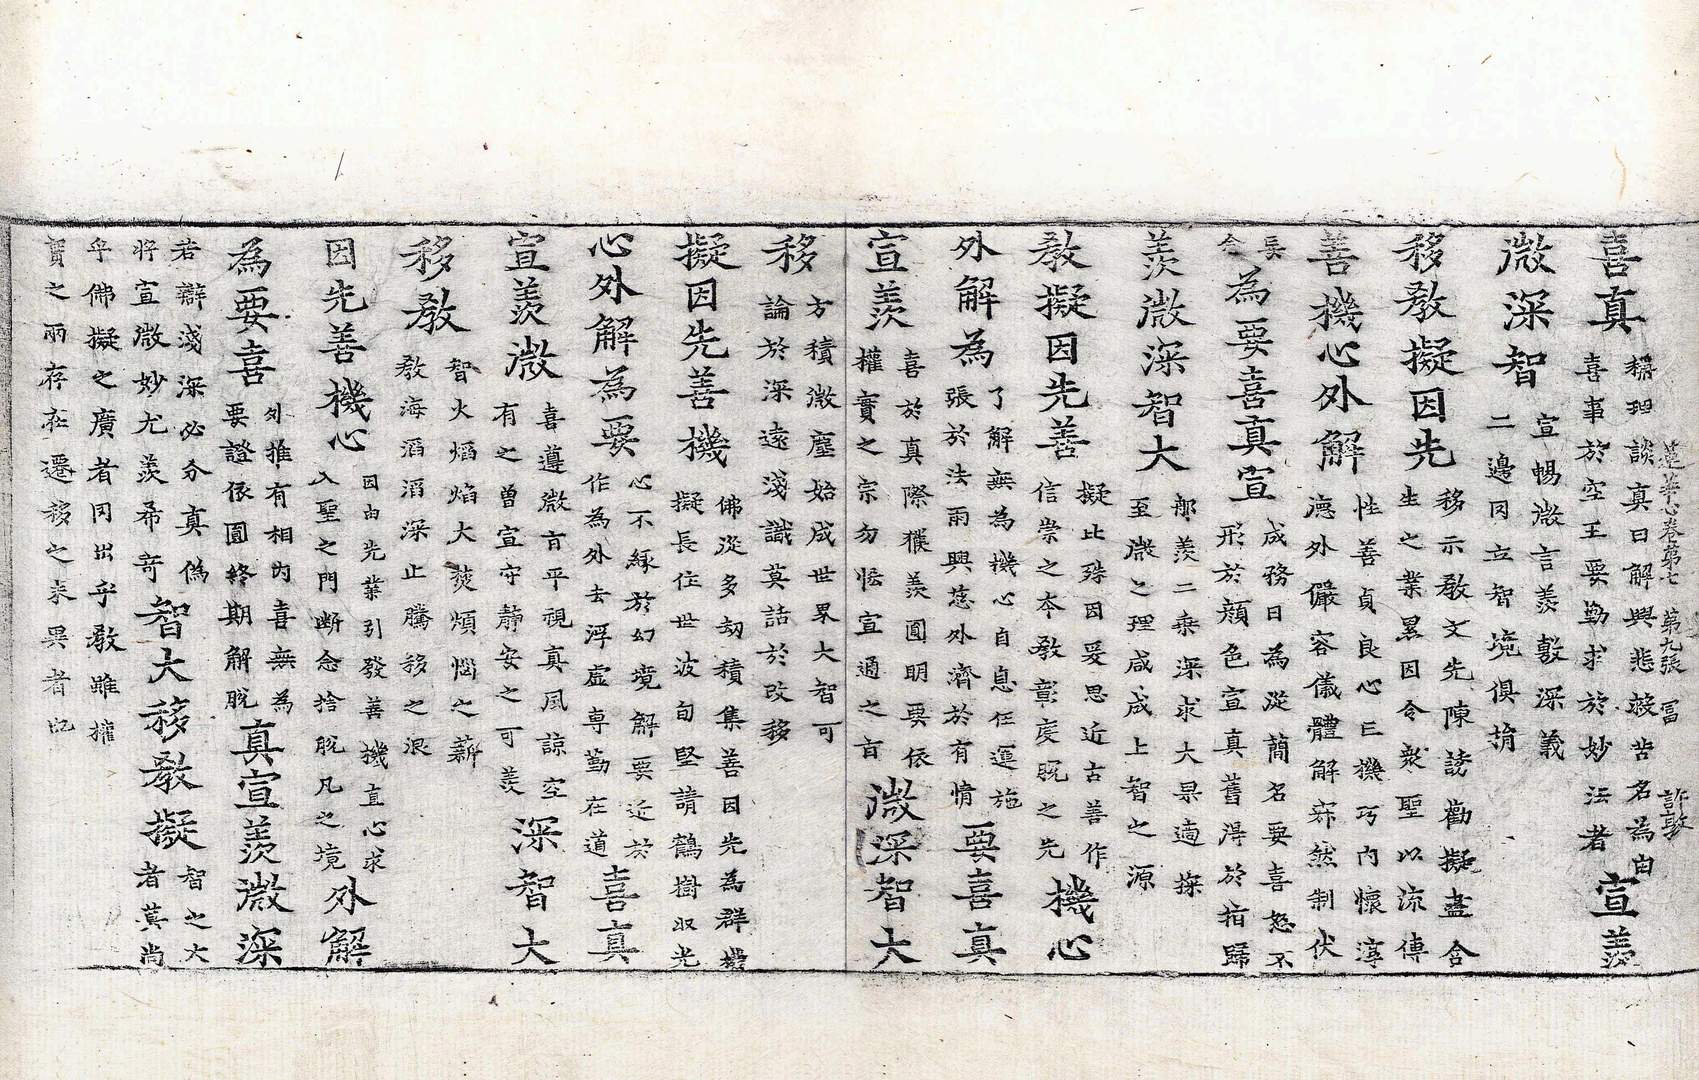 蓮華心卷第七 第九張 冨 許敬
喜真
稱理談真曰解興悲拔苦名為自
喜事於空王要勤求於妙法者
宣羨
微深智
宣暢微言羨敷深義
二邊冈立智境俱捐
移教擬因先
移示教文先陳誘勸擬盡含
生之業累因令衆聖以流傳
善機心外解
性善貞良心亡機巧内懷淳
德外儼容儀體解寂然制伏
為要喜真宣
成務日為從簡名要喜怒不
形於顔色宣真舊得於指歸
羨微深智大
那羨二乘深求大果遍探
至微之理咸成上智之源
教擬因先善
擬比殊因爰思近古善作
信崇之本教彰度脫之先
機心
外解為
了解無為機心自息任運施
張於法雨興慈外濟於有情
要喜真
宣羨
喜於真際獲羨圓明要依
權實之宗勿恡宣通之旨
微深智大
移
方積微塵始成世界大智可
論於深遠淺識莫詰於改移
擬因先善機
佛從多劫積集善因先為群機
擬長住世波旬堅請鶴樹収光
心外解為要
心不緣於幻境解要近於
作為外去浮虛専勤在道
喜真
宣羨微
喜遵微言平視真風諒空
有之曾宣守静安之可羨
深智大
移教
智火熖焰大焚煩惱之薪
教海滔滔深止騰移之浪
因先善機心
因由先業引發善機直心求
入聖之門断念捨脫凡之境
外解
為要喜
外推有相内喜無為
要證依圓終期解脫
真宣羨微深
若辯淺深必分真偽
將宣微妙尤羨希奇
智大移教擬
智之大
者莫尚
乎佛擬之廣者冈出乎教雖權
實之雨存在遷移之来異者